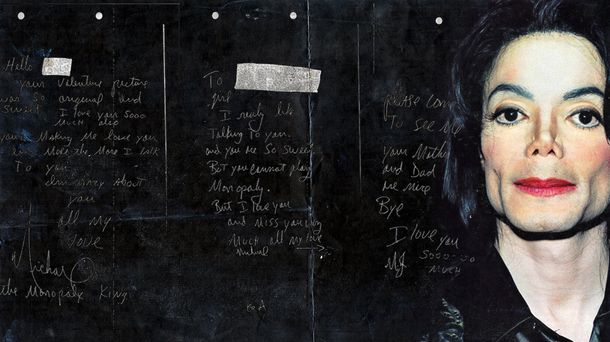 Hello
your Valentine picture
was so original and
sweet I love you sooo
much also
your making me love you
more the more I talk
To you.
about
you
all my
love
Michael
the Monopoly King
To
girl
I really like
Talking to you.
and you are so sweet
But you cannot play
Monopoly.
But I love you
and miss you very
much all my love
Michael
please come
To see me
your Mother
and Dad
are nice
Bye
I love you
MJ. sooo-oo
much